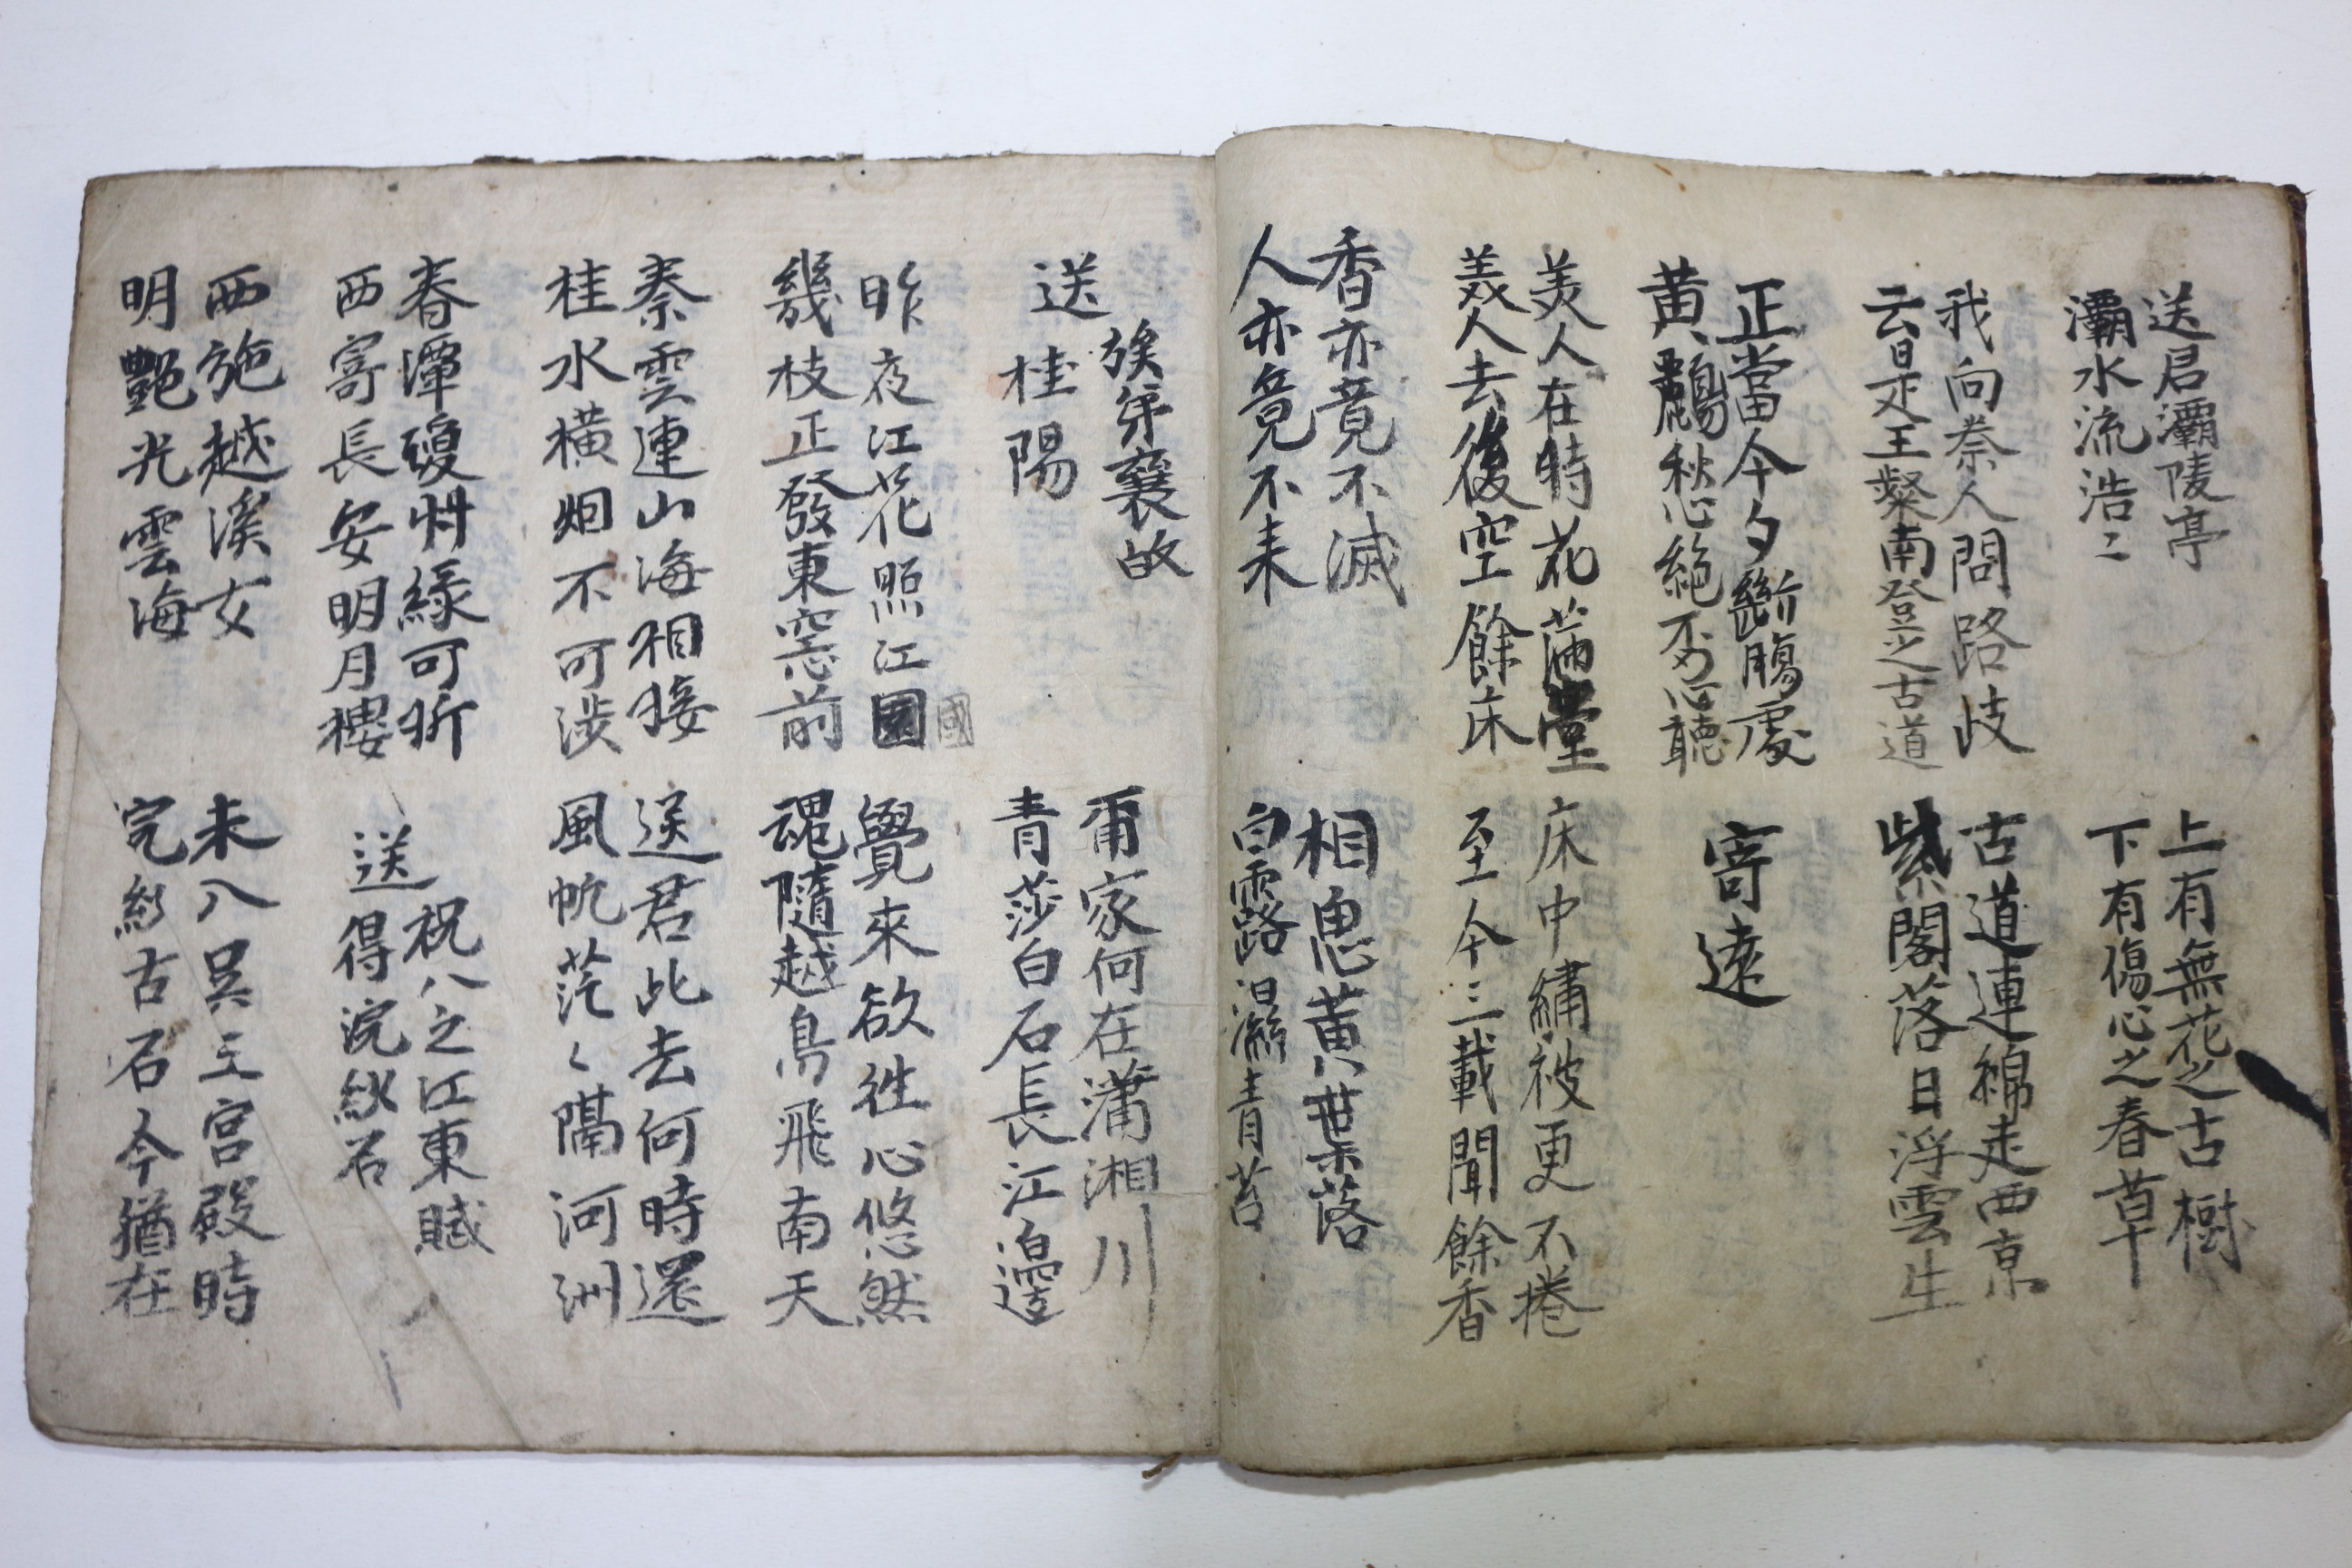 送君灞陵亭
灞水流浩〻
上有無花之古樹
下有傷心之春草
我向秦人問路歧
云是王粲南登之古道
古道連綿走西京
紫閣落日浮雲生
正當今夕斷腸處
黃鸝愁絕不忍聽
寄遠
美人在時花滿堂
美人去後空餘床
床中繡被更不捲
至今三載聞餘香
香亦竟不滅
人亦竟不来
相思黃葉落
白露濕青苔
送
族弟襄故
桂陽
爾家何在瀟湘川
青莎白石長江邊
昨夜江花照江國
國
幾枝正發東窓前
覺來欲往心悠然
魂隨越鳥飛南天
秦雲連山海相接
桂水橫烟不可涉
送君此去何時還
風帆茫〻隔河洲
春潭瓊艸綠可折
西寄長安明月樓
送
祝八之江東賦
得浣紗石
西施越溪女
明艷光雲海
未入吳王宮殿時
浣紗古石今猶在